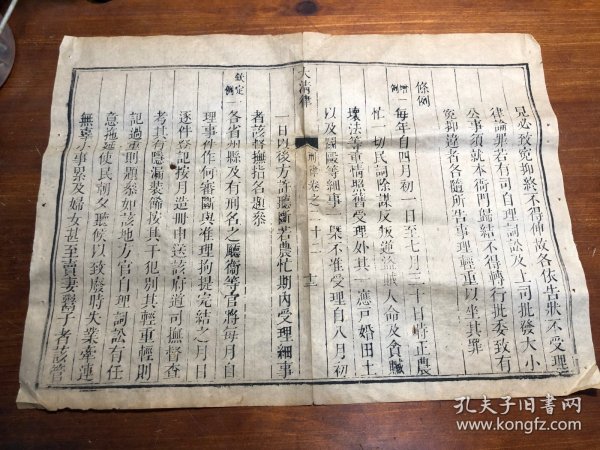 見必致冤抑終不得伸故各依告狀不受理
律論罪若有司自理詞訟及上司批發大小
公事須就本衙門歸結不得轉行批委致有
冤抑違者各隨所告事理輕重以坐其罪
條例
增例一每年自四月初一日至七月三十日時正農
忙一切民詞除謀反叛逆盜賊人命及貪贓
壞法等重情照舊受理外其一應戶婚田土
以及鬬毆等細事一槩不准受理自八月初
大清律
刑律卷之二十二
十二
一日以後方許聽斷若農忙期內受理細事
者該督撫指名題參
欽定例一各省州縣及有刑名之廳衛等官將每月自
理事件作何審斷與准理拘提完結之月日
逐件登記按月造冊申送該府道司撫督查
考其有隱漏裝飾按其干犯別其輕重輕則
記過重則題參如該地方官自理詞訟有任
意拖延使民朝夕聽候以致廢時失業牽連
無辜小事累及婦女甚至賣妻鬻子者該管
孔夫子旧书网
www.kongfz.com